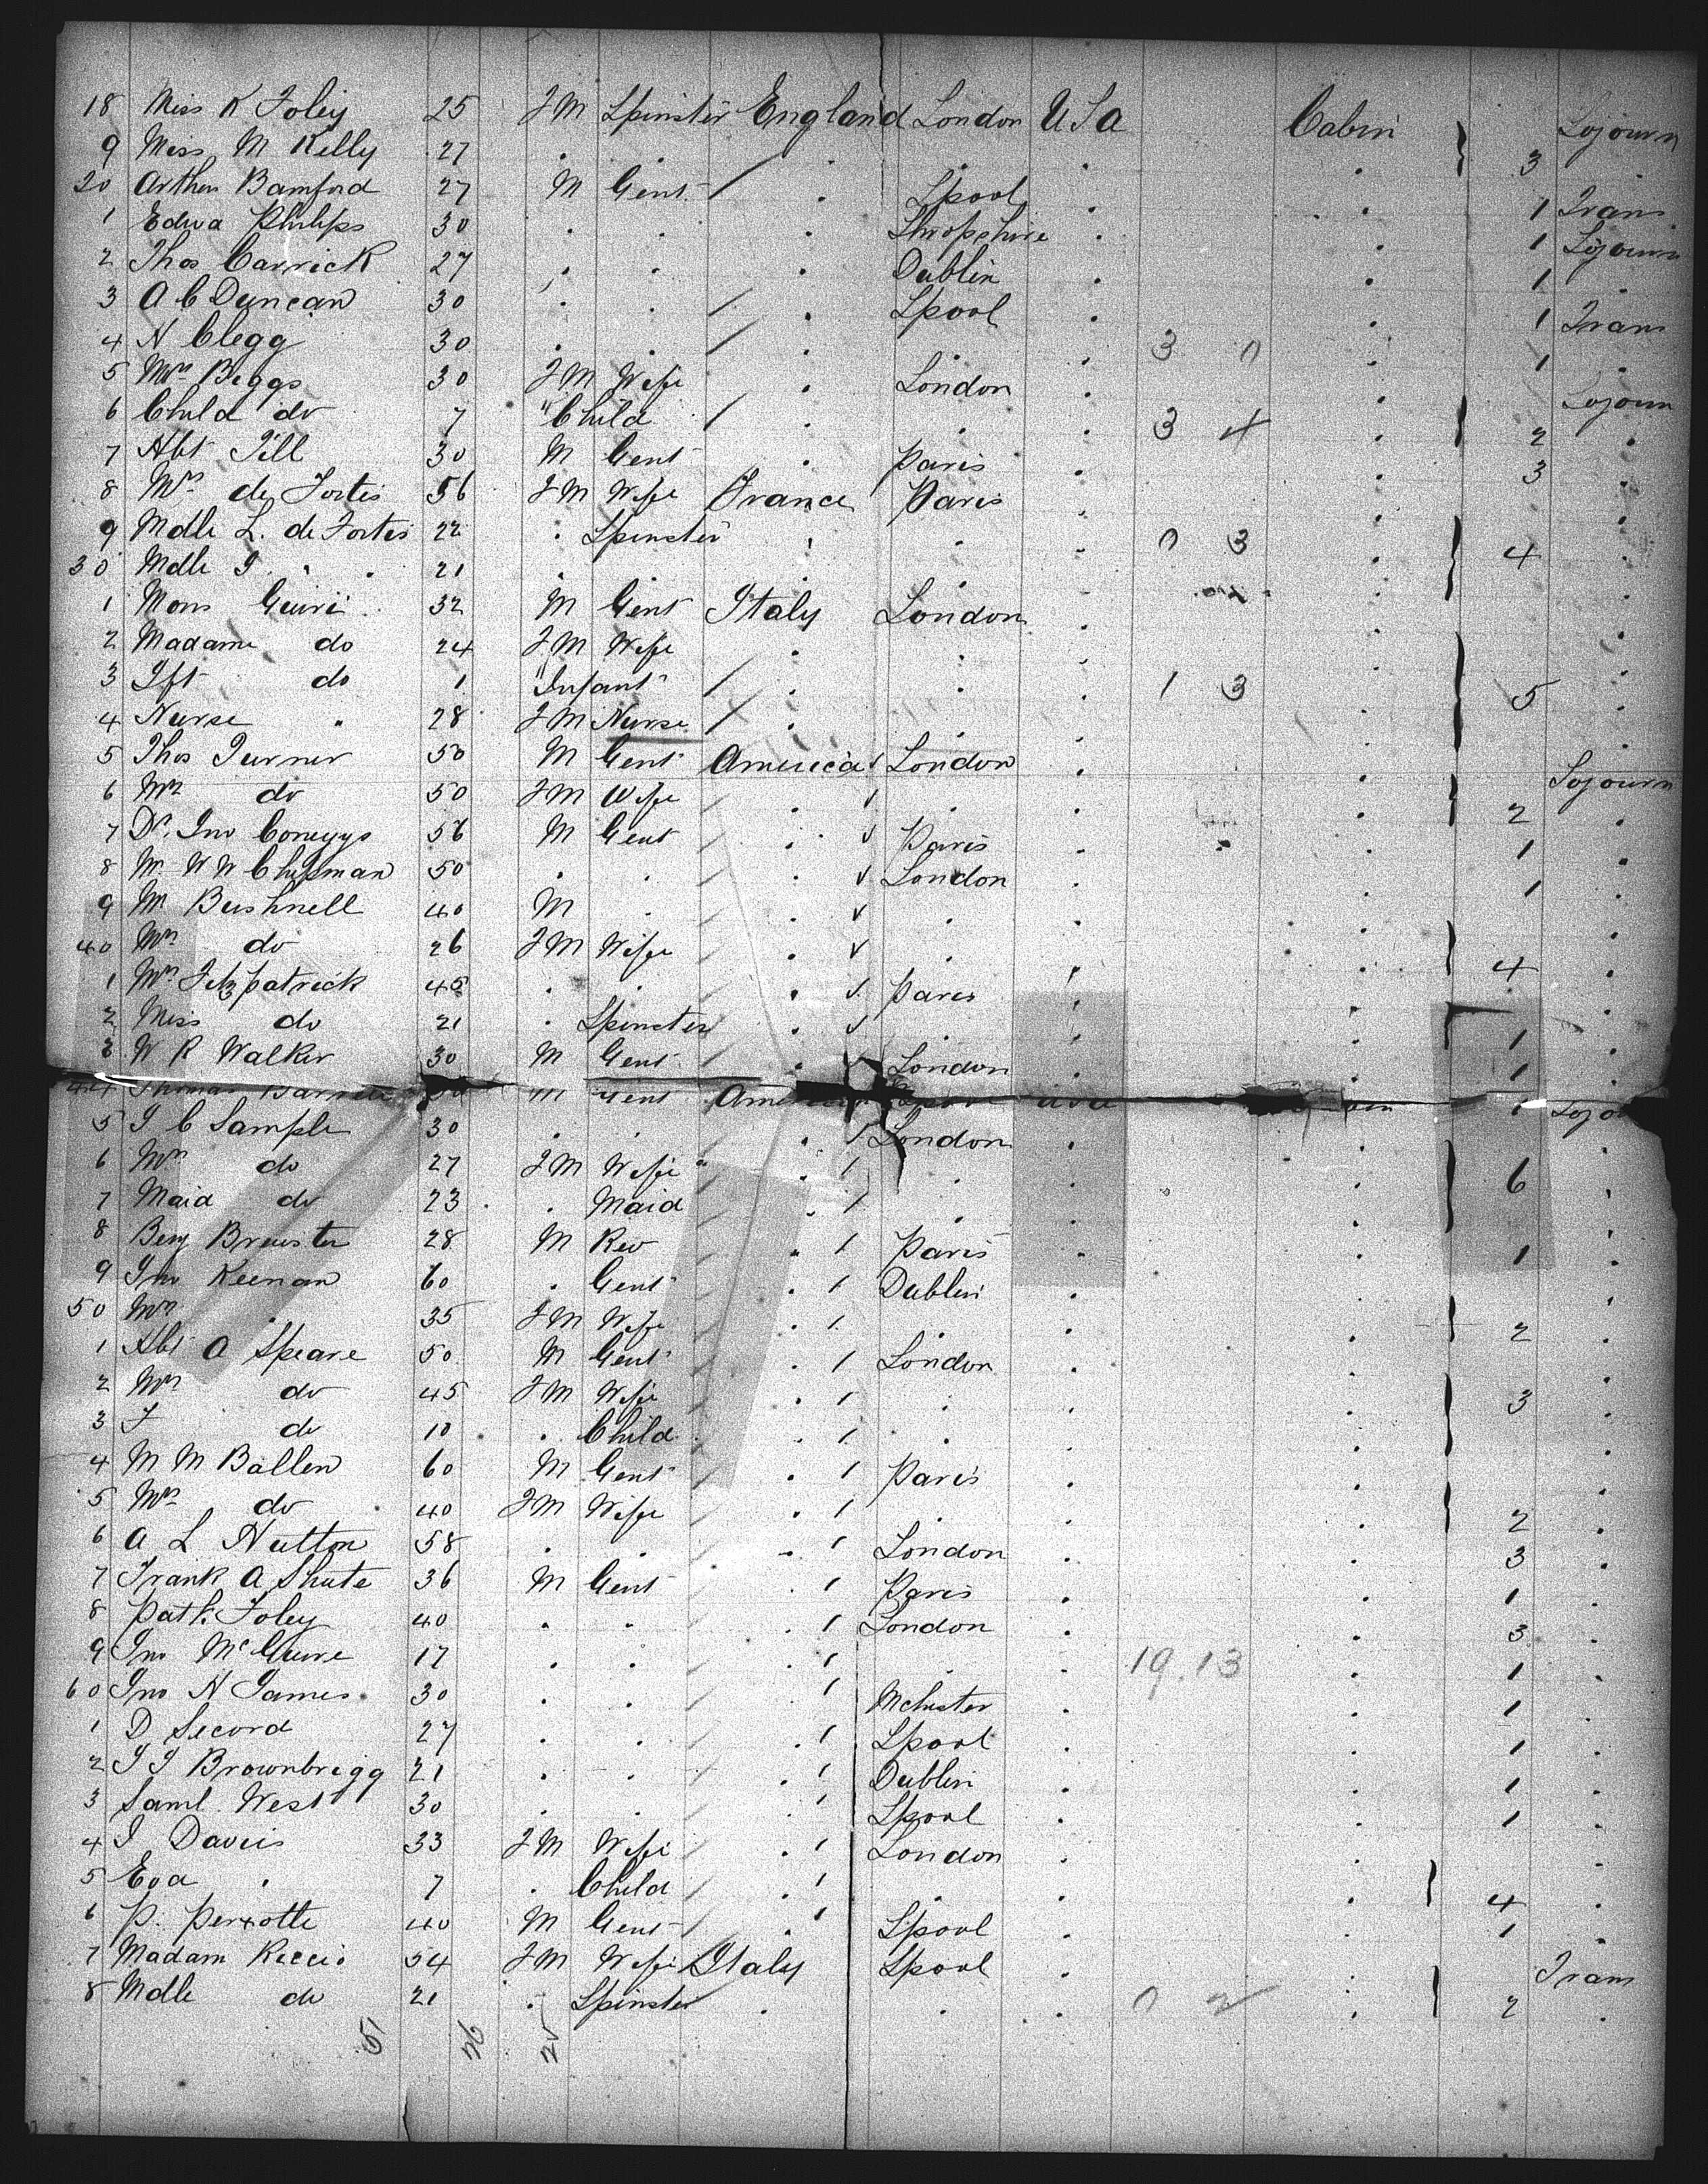 18 Miss K Foley 25 FM Spinster England London USA Cabin Sojourn
9 Miss M Kelly 27 . . / . . . . 3
20 Arthur Bamford 27 M Gent / . Lpool . . 1 Trans
1 Edwa Philips 30 . . . Shropshire . . 1 Sojourn
2 Thos Carrick 27 . . . Dublin . . 1 .
3 A C Duncan 30 . . / . Lpool . . 1 Trans
4 N Clegg 30 . . / . . . 3 0 . 1 .
5 Mrs Beggs 30 FM Wife . London . . Sojourn
6 Child do 7 " Child / . . . 3 4 . 2 .
7 Abt Till 30 M Gent . Paris . . 3 .
8 Mrs de Fortis 56 FM Wife France Paris . . .
9 Mdle L. de Fortis 22 . Spinster . . . 0 3 . 4 .
30 Mdle . . 21 . . . . . . .
1 Mons 32 M Gent Italy London . . .
2 Madame do 24 FM Wife . . . . .
3 Ift do 1 " Infant / . . . 1 3 . 5 .
4 Nurse " 28 FM Nurse / . . . . .
5 Thos Turner 50 M Gent America London . . Sojourn
6 Mrs do 50 FM Wife . . . . 2 .
7 Dr. Jno Coneyys 56 M Gent . Paris . . 1 .
8 Mr W W Chipman 50 . . . London . . 1 .
9 Mr Bushnell 40 M . . . . . .
40 Mrs do 26 FM Wife . . . . 4 .
1 Mrs Fitzpatrick 45 . . . Paris . . .
2 Miss do 21 . Spinster . . . . 1 .
3 W R Walker 30 M Gent . London . . 1 .
44 Thomas M Gent USA 1
5 J C Sample 30 . . . London . . .
6 Mrs do 27 FM Wife . . . . 6 .
7 Maid do 23 . Maid . . . . .
8 Benj Brewster 28 M Rev . Paris . . 1 .
9 Jno Keenan 60 . Gent . Dublin . . .
50 Mrs . 35 FM Wife . . . . 2 .
1 Abt A Speare 50 M Gent . London . . .
2 Mrs do 45 FM Wife . . . . 3 .
3 F do 10 . Child . . . . .
4 M M Ballen 60 M Gent . Paris . . .
5 Mrs do 40 FM Wife . . . . 2 .
6 A L Hutton 58 . . . London . . 3 .
7 Frank A Shute 36 M Gent . Paris . . 1 .
8 Patk Foley 40 . . . London . . 3 .
9 Jno McGuire 17 . . . . . 19.13 . 1 .
60 Jno H James 30 . . . Mchester . . 1 .
1 D Secord 27 . . . Lpool . . 1 .
2 J J Brownbrigg 21 . . . Dublin . . 1 .
3 Saml West 30 . . . Lpool . . 1 .
4 J Davis 33 FM Wife . London . . .
5 Eva . 7 . Child . . . . 4 .
6 P. 40 M Gent . Lpool . . 1 .
7 Madam Riccio 54 FM Wife Italy Lpool . . Trans
8 Mdle do 21 . Spinster . . . 0 2 . 2 .
51 26 25